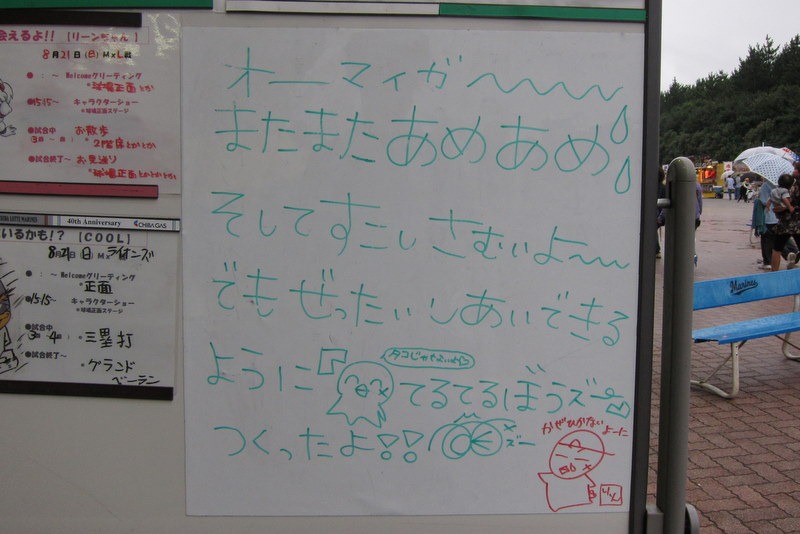 会えるよ!! 【リーンちゃん】
8月21日(日) M×L戦
●：～ Welcomeグリーティング
*球場正面とか
●15:15～ キャラクターショー
*球場正面ステージ
●試合中 お散歩
*2階席とかとか
●試合終了～ お見送り
*球場正面とかとかとか
40th Anniversary CHIBA GAS
いるかも!? 【COOL】
8月21日(日) M×ライオンズ
●：～ Welcomeグリーティング
*正面
●15:15～ キャラクターショー
*球場正面ステージ
●試合中
3回 4回 *三塁打
●試合終了～
*グランド
ベーラン
オーマイガ～～～～
またまたあめあめ
そしてすこしさむいよ～～
でもぜったいしあいできる
ように
タコじゃないよ
てるてるぼうズー
つくったよ!!
ズー
かぜひかないよーに
りん
Marines